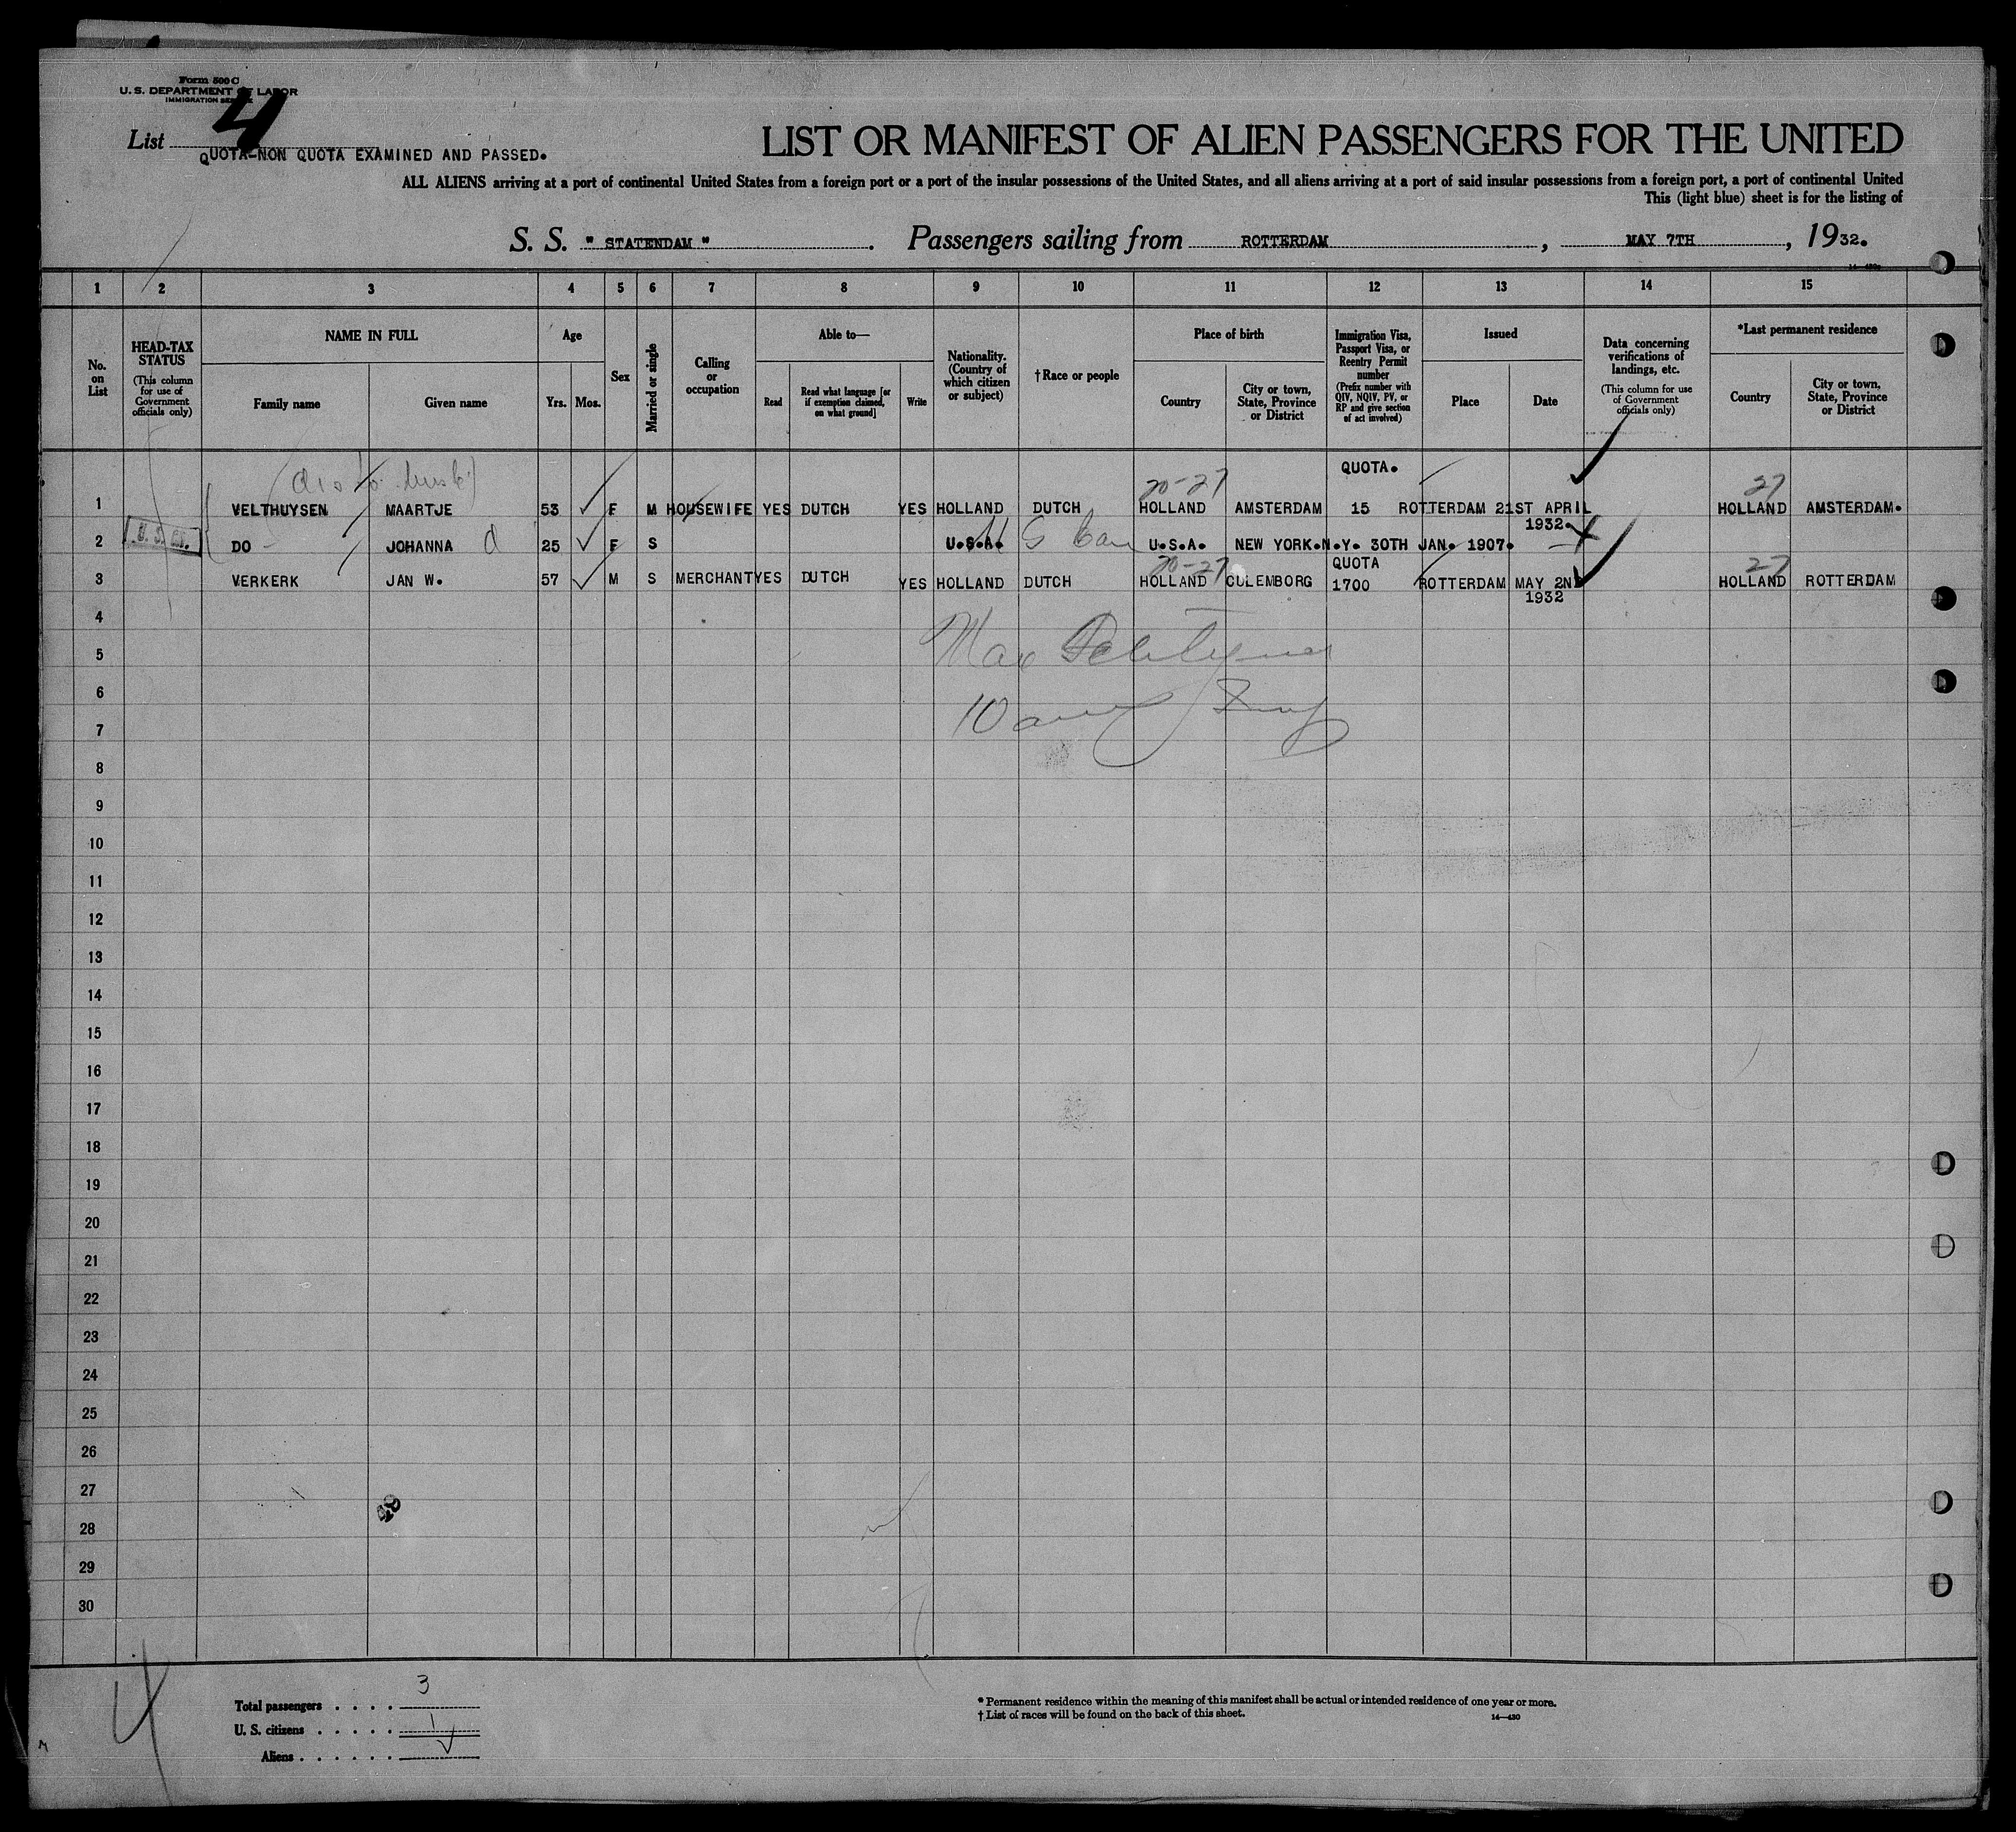 Form 500 C
U. S. DEPARTMENT OF LABOR
IMMIGRATION SERVICE
List 4
QUOTA-NON QUOTA EXAMINED AND PASSED.
LIST OR MANIFEST OF ALIEN PASSENGERS FOR THE UNITED
ALL ALIENS arriving at a port of continental United States from a foreign port or a port of the insular possessions of the United States, and all aliens arriving at a port of said insular possessions from a foreign port, a port of continental United
This (light blue) sheet is for the listing of
S. S. "STATENDAM". Passengers sailing from ROTTERDAM, MAY 7TH, 1932.
1 2 3 4 5 6 7 8 9 10 11 12 13 14 15
No. on List
HEAD-TAX STATUS (This column for use of Government officials only)
NAME IN FULL
Family name Given name
Age
Yrs. Mos.
Sex
Married or single
Calling or occupation
Able to—
Read
Read what language [or if exemption claimed, on what ground]
Write
Nationality. (Country of which citizen or subject)
†Race or people
Place of birth
Country
City or town, State, Province or District
Immigration Visa, Passport Visa, or Reentry Permit number (Prefix number with QIV, NQIV, PV, or RP and give section of act involved)
Issued
Place Date
Data concerning verifications of landings, etc. (This column for use of Government officials only)
*Last permanent residence
Country
City or town, State, Province or District
QUOTA.
20-27 27
1 VELTHUYSEN MAARTJE 53 F M HOUSEWIFE YES DUTCH YES HOLLAND DUTCH HOLLAND AMSTERDAM 15 ROTTERDAM 21ST APRIL HOLLAND AMSTERDAM.
1932.
2 DO JOHANNA d 25 F S U.S.A. U.S.A. NEW YORK.N.Y. 30TH JAN. 1907.
20-27 QUOTA 27
3 VERKERK JAN W. 57 M S MERCHANT YES DUTCH YES HOLLAND DUTCH HOLLAND CULEMBORG 1700 ROTTERDAM MAY 2ND HOLLAND ROTTERDAM
1932
4
5
6
7
8
9
10
11
12
13
14
15
16
17
18
19
20
21
22
23
24
25
26
27
28
29
30
4
Total passengers . . . . 3
U. S. citizens . . . . . 1
Aliens . . . . . .
* Permanent residence within the meaning of this manifest shall be actual or intended residence of one year or more.
† List of races will be found on the back of this sheet.
14—430